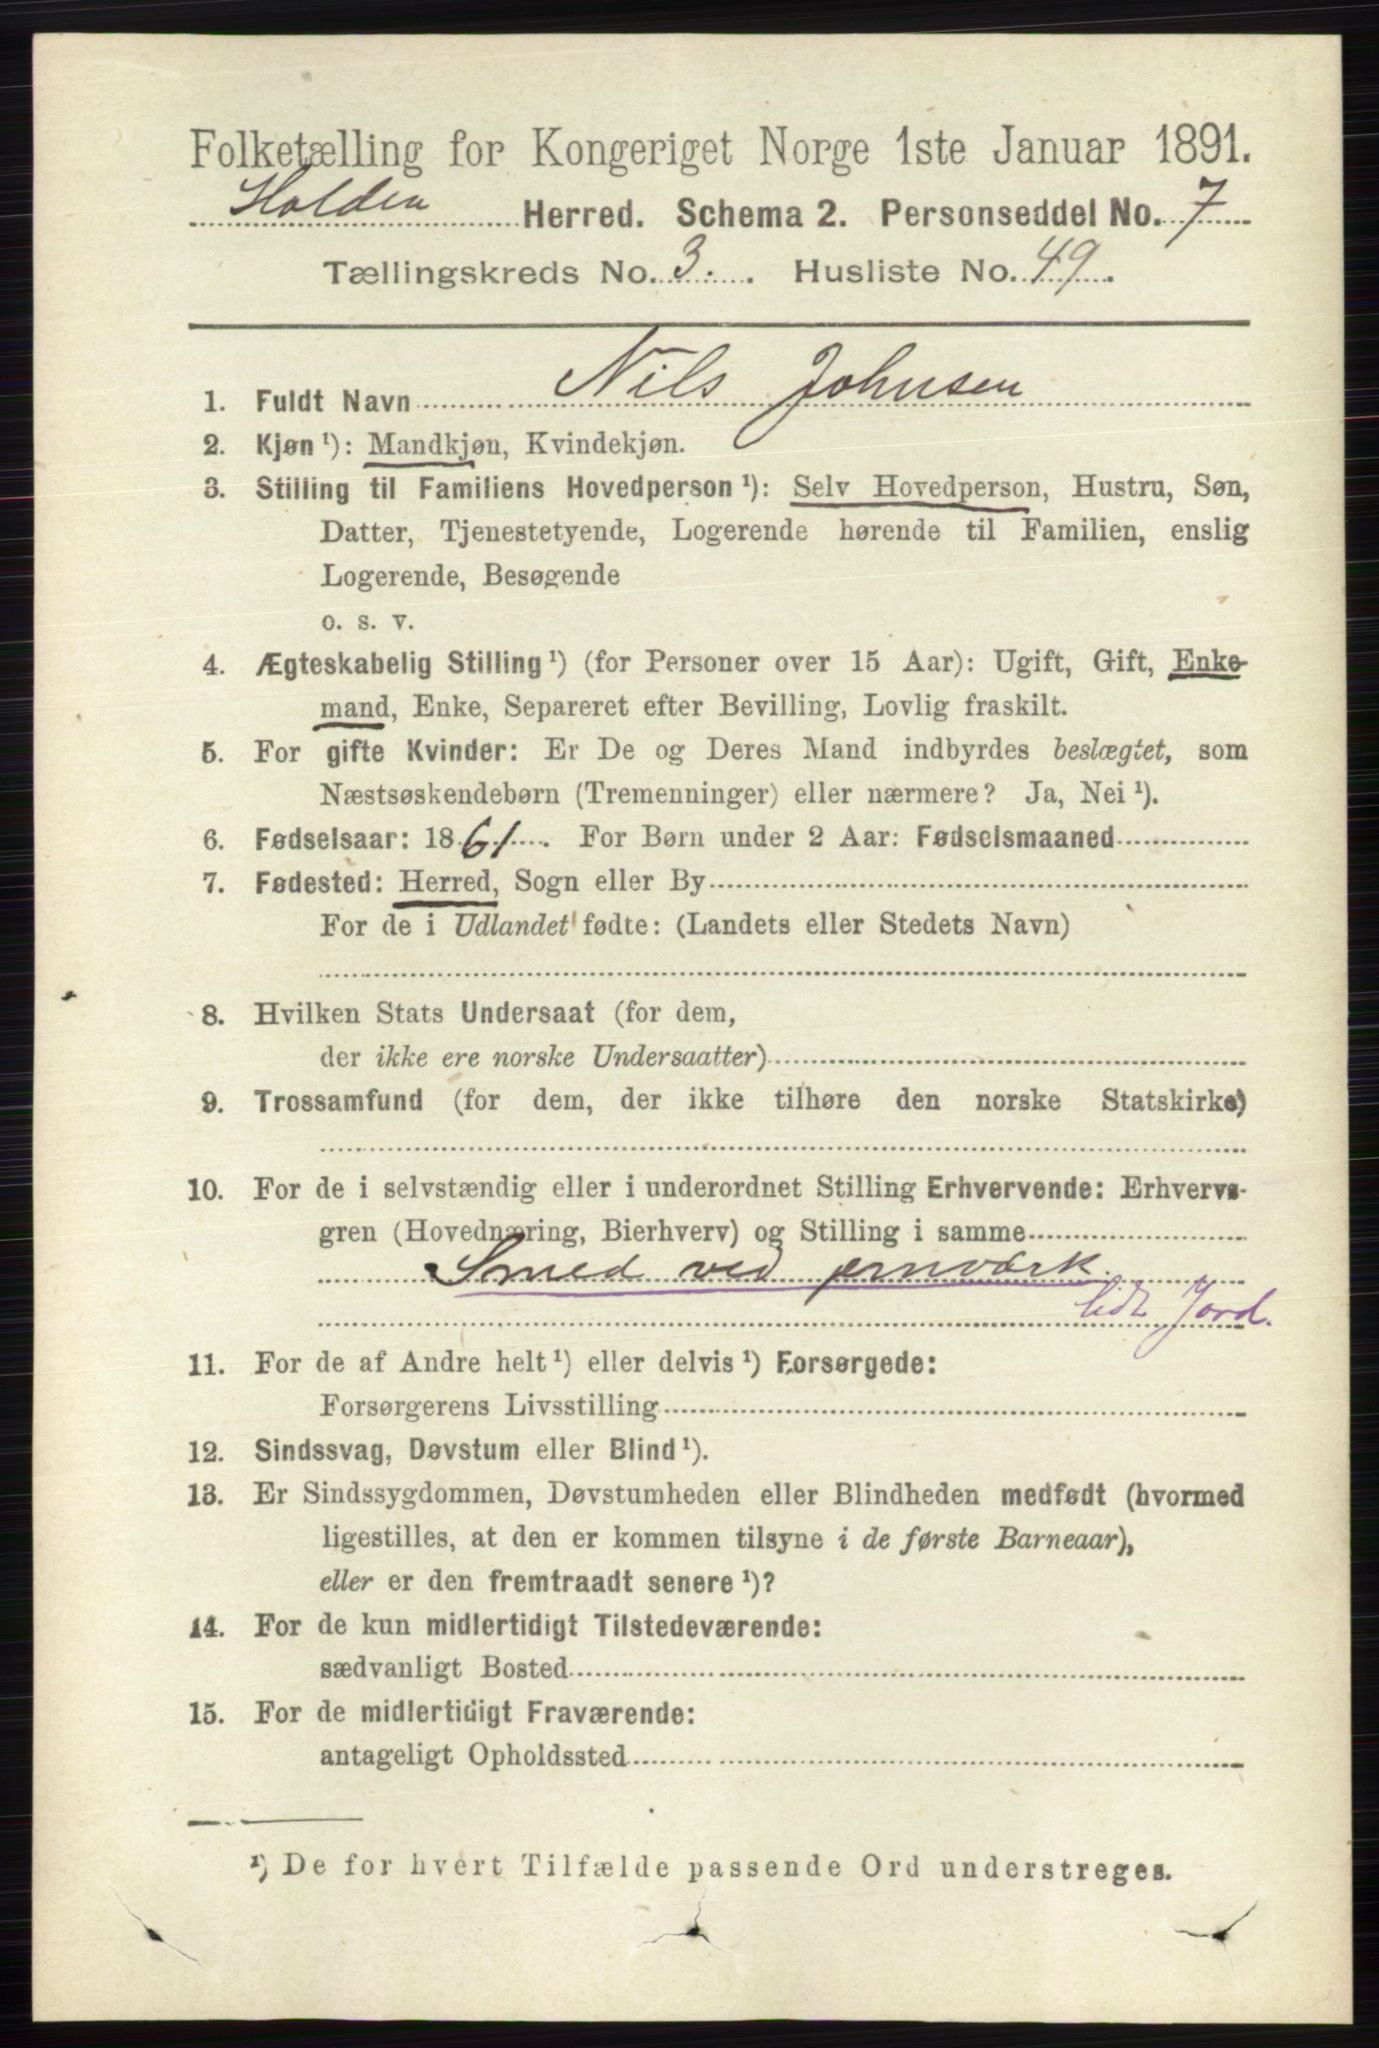 Folketælling for Kongeriget Norge 1ste Januar 1891.
Holden Herred. Schema 2. Personseddel No. 7
Tællingskreds No. 3. Husliste No. 49.
1. Fuldt Navn Nils Johnsen
2. Kjøn ¹): Mandkjøn, Kvindekjøn.
3. Stilling til Familiens Hovedperson ¹): Selv Hovedperson, Hustru, Søn,
Datter, Tjenestetyende, Logerende hørende til Familien, enslig
Logerende, Besøgende
o. s. v.
4. Ægteskabelig Stilling ¹) (for Personer over 15 Aar): Ugift, Gift, Enke-
mand, Enke, Separeret efter Bevilling, Lovlig fraskilt.
5. For gifte Kvinder: Er De og Deres Mand indbyrdes beslægtet, som
Næstsøskendebørn (Tremenninger) eller nærmere? Ja, Nei ¹).
6. Fødselsaar: 1861. For Børn under 2 Aar: Fødselsmaaned
7. Fødested: Herred, Sogn eller By
For de i Udlandet fødte: (Landets eller Stedets Navn)
8. Hvilken Stats Undersaat (for dem,
der ikke ere norske Undersaatter)
9. Trossamfund (for dem, der ikke tilhøre den norske Statskirke)
10. For de i selvstændig eller i underordnet Stilling Erhvervende: Erhvervs-
gren (Hovednæring, Bierhverv) og Stilling i samme
Smed ved jernværk.
lidt Jord.
11. For de af Andre helt ¹) eller delvis ¹) Forsørgede:
Forsørgerens Livsstilling
12. Sindssvag, Døvstum eller Blind ¹).
13. Er Sindssygdommen, Døvstumheden eller Blindheden medfødt (hvormed
ligestilles, at den er kommen tilsyne i de første Barneaar),
eller er den fremtraadt senere ¹)?
14. For de kun midlertidigt Tilstedeværende:
sædvanligt Bosted
15. For de midlertidigt Fraværende:
antageligt Opholdssted
¹) De for hvert Tilfælde passende Ord understreges.